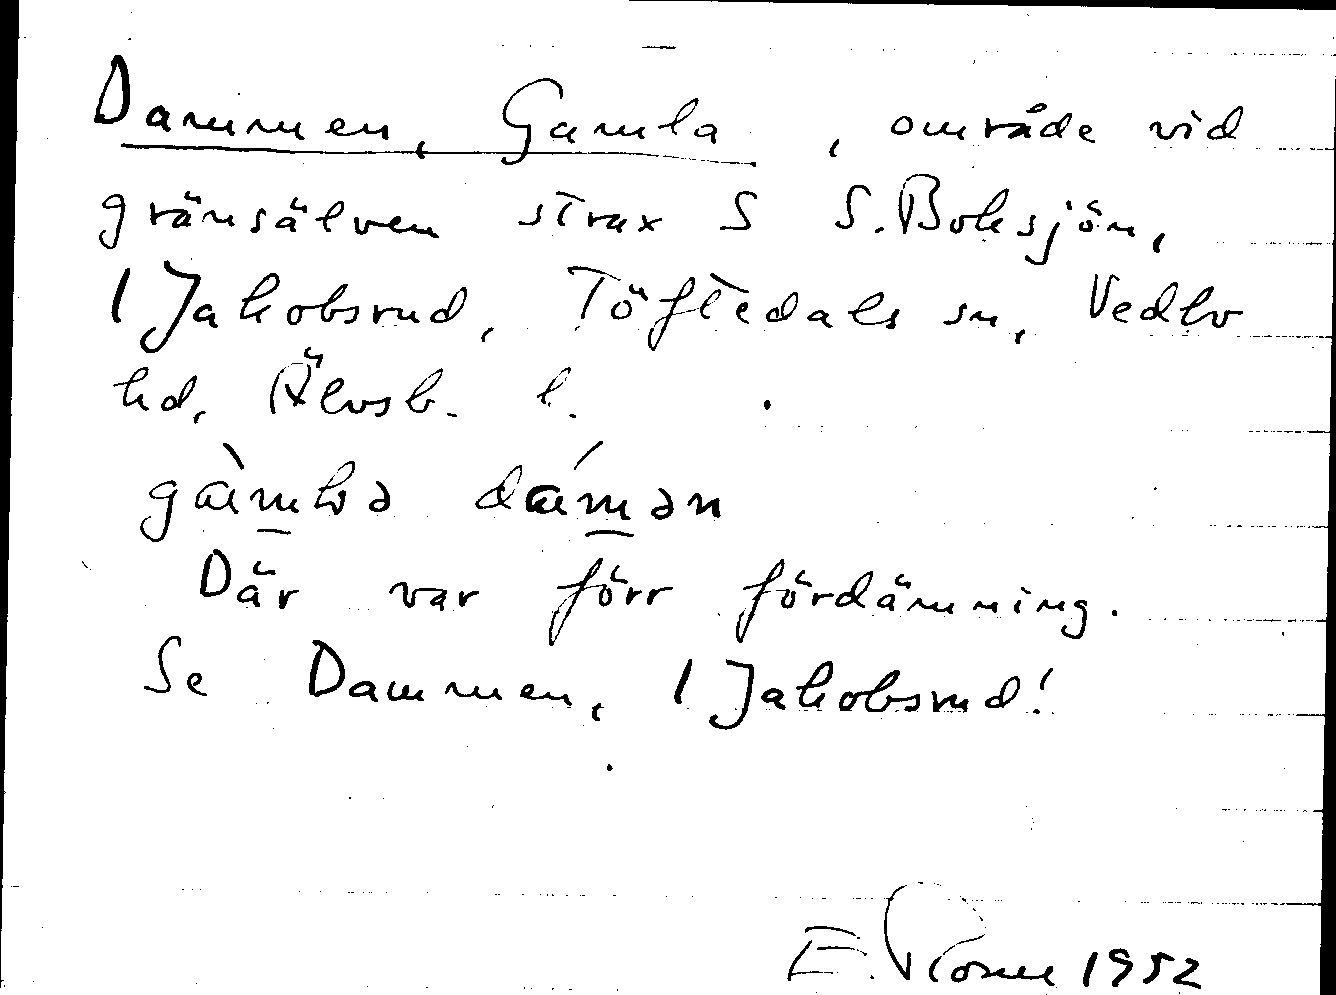 Dammen, Gamla, område vid
gränsälven strax S S. Boksjön,
1 Jakobsrud, Töftedals sn, Vedbo
hd, Älvsb. l.
gàmbə dámən
Där var förr fördämning.
Se Dammen, 1 Jakobsrud!
E. 1952